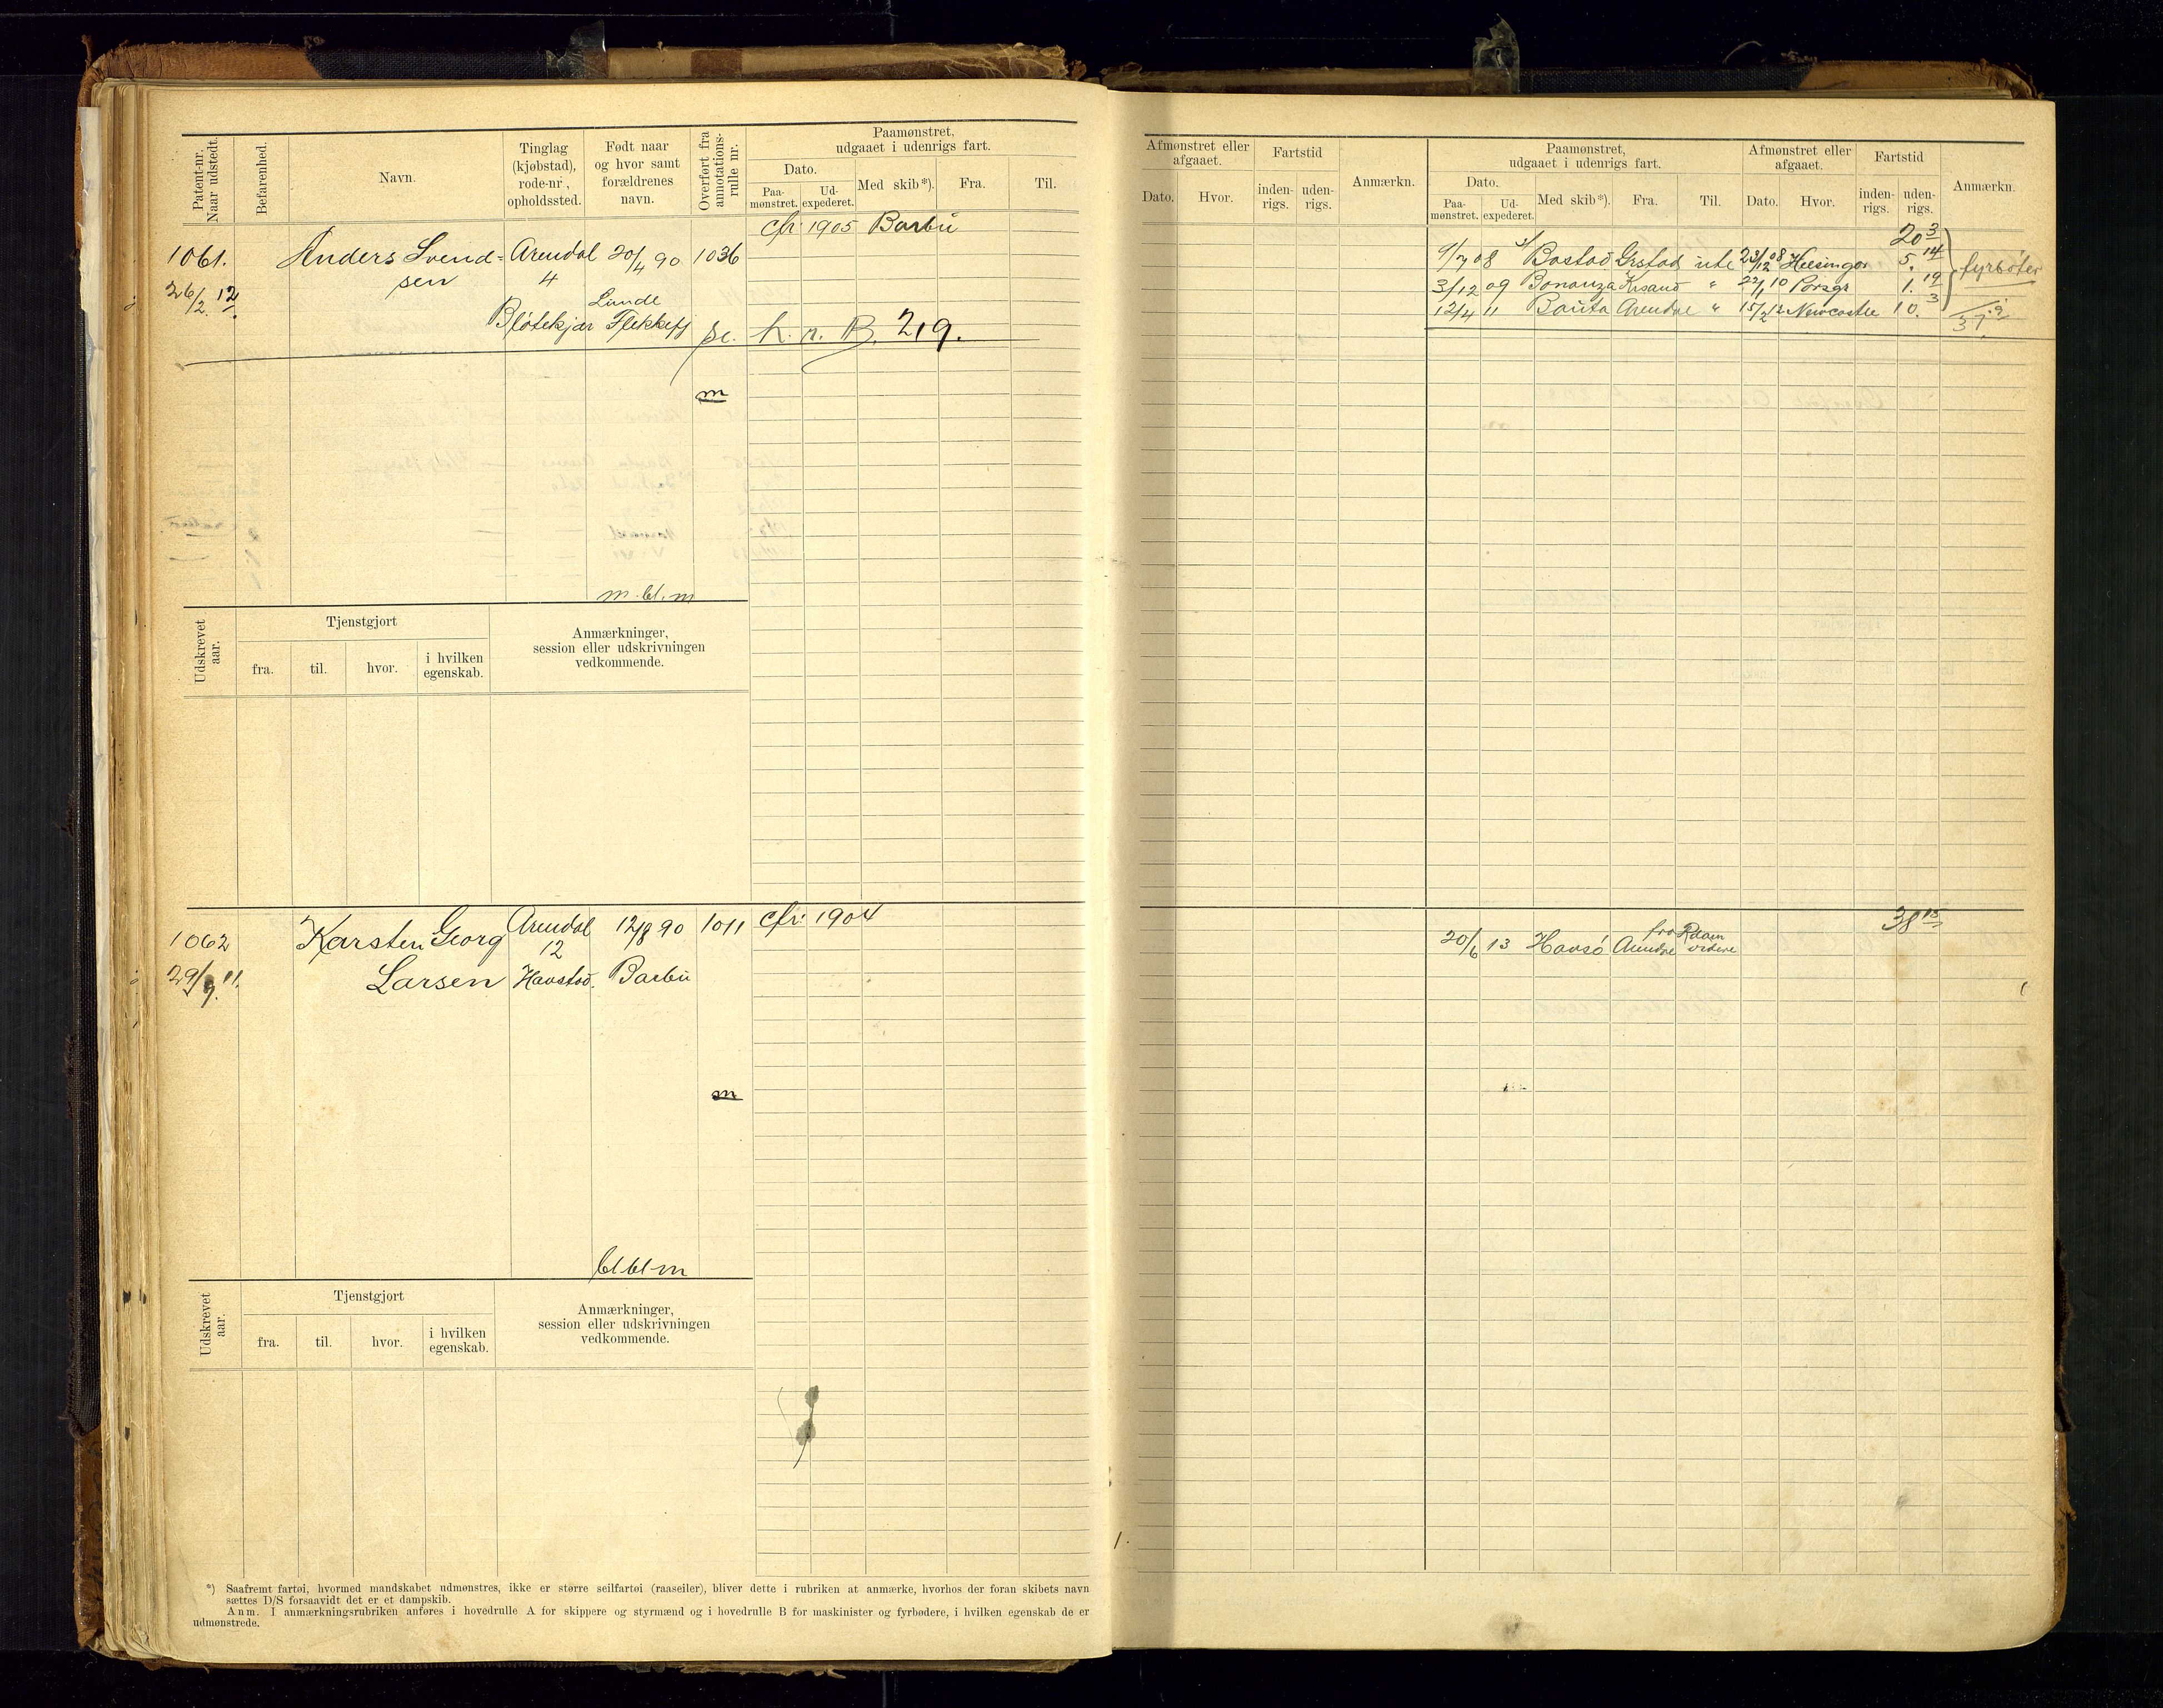 Patent-nr. Naar udstedt.
Befarenhed.
Navn.
Tinglag (kjøbstad), rode-nr., opholdssted.
Født naar og hvor samt forældrenes navn.
Overført fra annotations-rulle nr.
Paamønstret, udgaaet i udenrigs fart.
Dato.
Paa-mønstret.
Ud-expederet.
Med skib*).
Fra.
Til.
cfr. 1905 Barbu
1061. Anders Svend= Arendal 20/4 90 1036
sen 4
26/2 12. Lunde
Bløtekjær Flekkefj se. h. r. B. 219.
m
m. bl. m
Udskrevet aar.
Tjenstgjort
fra.
til.
hvor.
i hvilken egenskab.
Anmærkninger, session eller udskrivningen vedkommende.
1062 Karsten Georg Arendal 12/8 90 1011 cfr. 1904
12
29/9 11. Larsen Havstad. Barbu
m
bl bl m
Udskrevet aar.
Tjenstgjort
fra.
til.
hvor.
i hvilken egenskab.
Anmærkninger, session eller udskrivningen vedkommende.
*) Saafremt fartøi, hvormed mandskabet udmønstres, ikke er større seilfartøi (raaseiler), bliver dette i rubriken at anmærke, hvorhos der foran skibets navn
sættes D/S forsaavidt det er et dampskib.
Anm. I anmærkningsrubriken anføres i hovedrulle A for skippere og styrmænd og i hovedrulle B for maskinister og fyrbødere, i hvilken egenskab de er
udmønstrede.
Afmønstret eller afgaaet.
Dato.
Hvor.
Fartstid
inden-rigs.
uden-rigs.
Anmærkn.
Paamønstret, udgaaet i udenrigs fart.
Dato.
Paa-mønstret.
Ud-expederet.
Med skib*).
Fra.
Til.
Afmønstret eller afgaaet.
Dato.
Hvor.
Fartstid
inden-rigs.
uden-rigs.
Anmærkn.
20 3
9/7 08 Bastad Grstad ute 23/12 08 Helsingør 5. 14
fyrbøter
3/12 09 Bonanza Krsand " 22/1 10 Porsgr 1. 19
12/4 11 Bauta Arendal " 15/2 12 Newcastle 10. 3
37. 9
38 15
20/6 13 Havsö Arendal fra Rdam videre